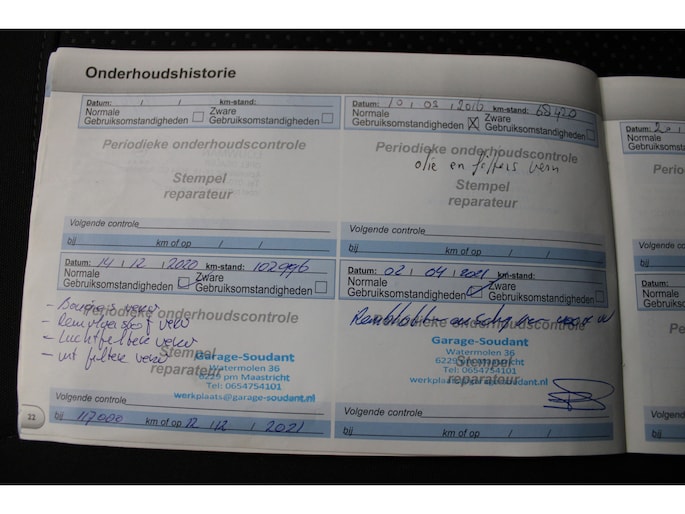 Onderhoudshistorie
Datum: / / km-stand:
Normale
Gebruiksomstandigheden
Zware
Gebruiksomstandigheden
Periodieke onderhoudscontrole
Stempel
reparateur
Volgende controle
bij km of op / /
Datum: 10 / 03 / 2016 km-stand: 68420
Normale
Gebruiksomstandigheden
Zware
Gebruiksomstandigheden
Periodieke onderhoudscontrole
olie en filters vern
Stempel
reparateur
Volgende controle
bij km of op / /
Datum: 14 / 12 / 2020 km-stand: 102996
Normale
Gebruiksomstandigheden
Zware
Gebruiksomstandigheden
Periodieke onderhoudscontrole
- Remvloeistof verv
- Luchtfilter verv
- int filter verv
Stempel
reparateur
Garage-Soudant
Watermolen 36
6229 pm Maastricht
Tel: 0654754101
werkplaats@garage-soudant.nl
Volgende controle
bij 117000 km of op 12 / 12 / 2021
Datum: 02 / 04 / 2021 km-stand:
Normale
Gebruiksomstandigheden
Zware
Gebruiksomstandigheden
Periodieke onderhoudscontrole
Stempel
reparateur
Garage-Soudant
Watermolen 36
6229 pm Maastricht
Tel: 0654754101
werkplaats@garage-soudant.nl
Volgende controle
bij km of op / /
22
Datum:
Normale
Gebruiksomsta
Perio
Volgende co
bij
Datum:
Normale
Gebruiksomst
Peri
Volgende
bij